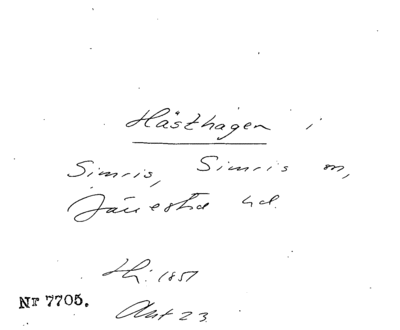 Hästhagen i
Simris, Simris sn,
Järrestad hd.
Hi. 1851
Nr 7705.
Akt 23